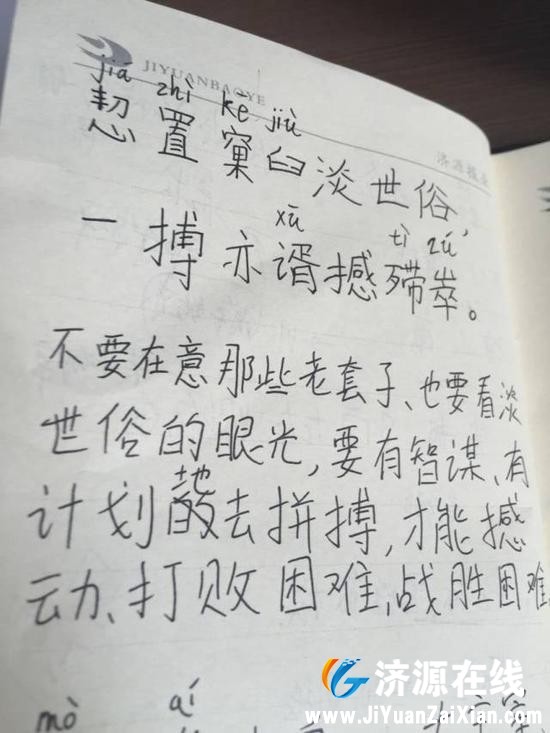 JIYUANBAOYE
济源报业
jiá zhì kē jiù
恝置窠臼淡世俗
xū tì zú
一搏亦谞撼殢崒。
不要在意那些老套子、也要看淡
世俗的眼光,要有智谋、有
计划地去拼搏,才能撼
动、打败困难,战胜困难
mò ái
济源在线
www.JiYuanZaiXian.com